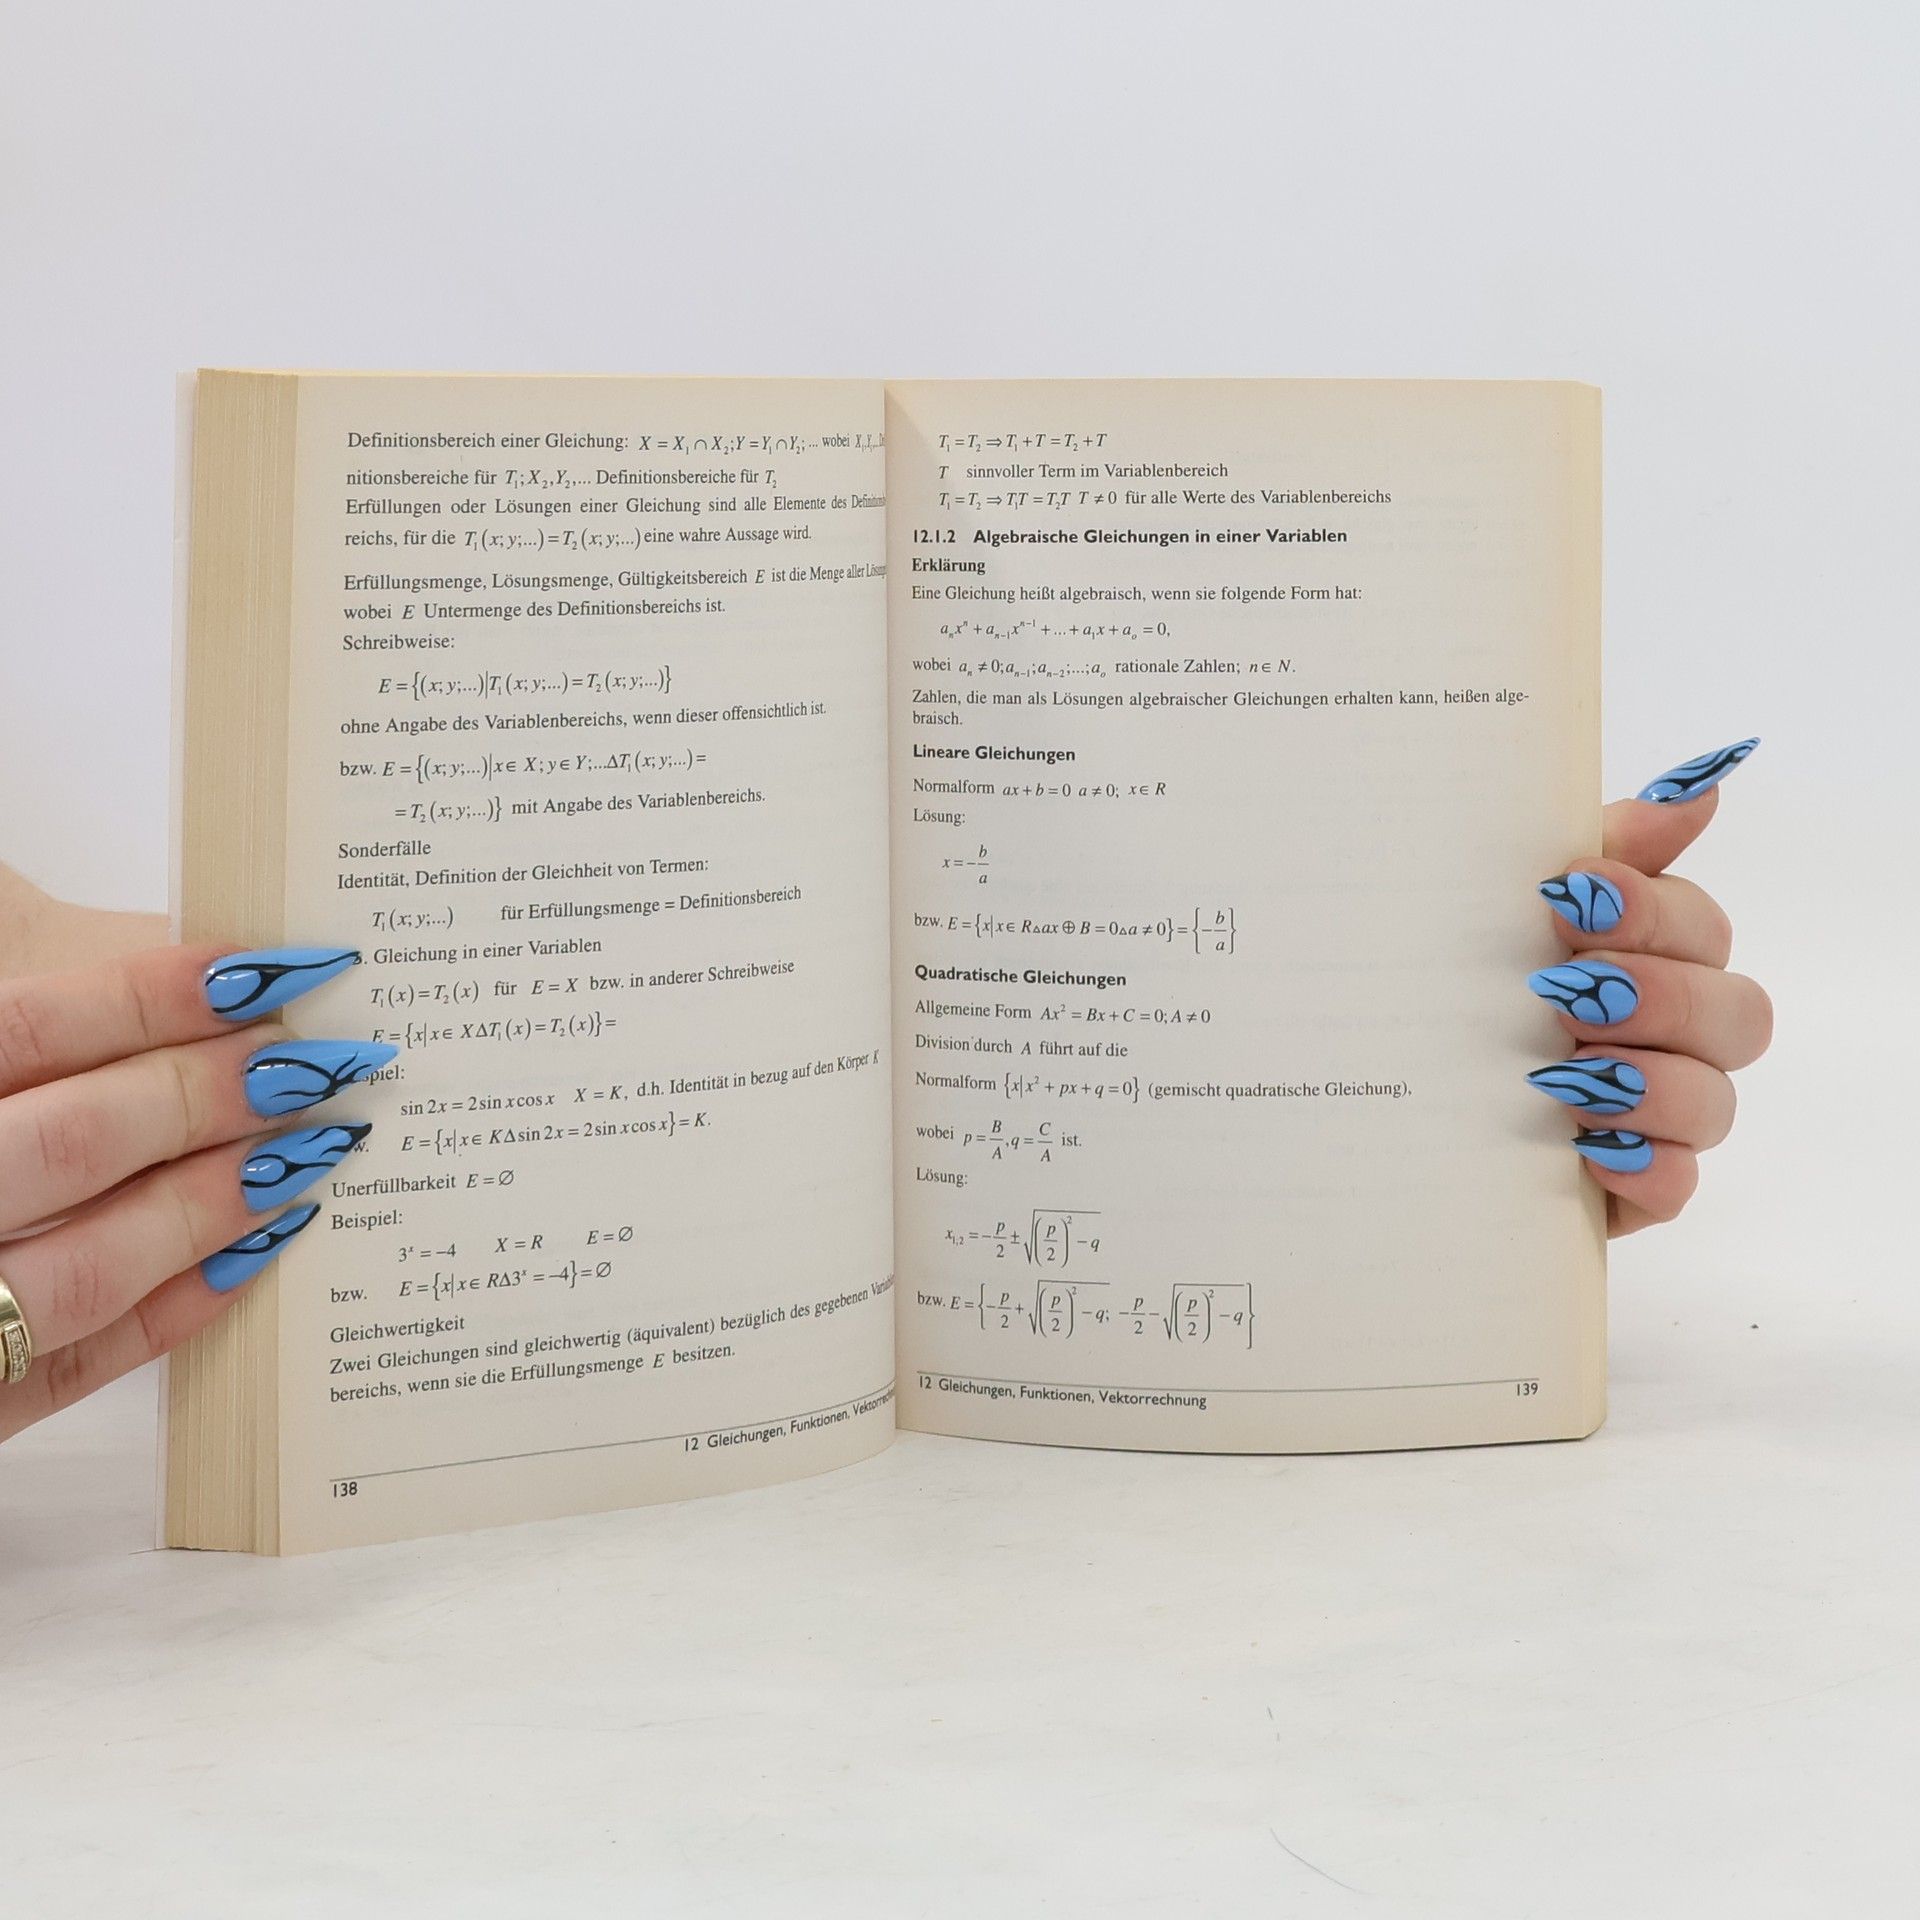 Definitionsbereich einer Gleichung: X = X₁ ∩ X₂; Y = Y₁ ∩ Y₂; ... wobei X₁,Y₁,...
nitionsbereiche für T₁; X₂, Y₂,... Definitionsbereiche für T₂
Erfüllungen oder Lösungen einer Gleichung sind alle Elemente des
reichs, für die T₁(x; y;...) = T₂(x; y;...) eine wahre Aussage wird.
Erfüllungsmenge, Lösungsmenge, Gültigkeitsbereich E ist die Menge aller
wobei E Untermenge des Definitionsbereichs ist.
Schreibweise:
E = {(x; y;...)|T₁(x; y;...) = T₂(x; y;...)}
ohne Angabe des Variablenbereichs, wenn dieser offensichtlich ist.
bzw. E = {(x; y;...)|x ∈ X; y ∈ Y;...ΔT₁(x; y;...) =
= T₂(x; y;...)} mit Angabe des Variablenbereichs.
Sonderfälle
Identität, Definition der Gleichheit von Termen:
T₁(x; y;...) für Erfüllungsmenge = Definitionsbereich
. Gleichung in einer Variablen
T₁(x) = T₂(x) für E = X bzw. in anderer Schreibweise
E = {x|x ∈ XΔT₁(x) = T₂(x)} =
spiel:
sin 2x = 2 sin x cos x X = K, d.h. Identität in bezug auf den Körper K
w. E = {x|x ∈ KΔ sin 2x = 2 sin x cos x} = K.
Unerfüllbarkeit E = ∅
Beispiel:
3ˣ = –4 X = R E = ∅
bzw. E = {x|x ∈ RΔ3ˣ = –4} = ∅
Gleichwertigkeit
Zwei Gleichungen sind gleichwertig (äquivalent) bezüglich des gegebenen
bereichs, wenn sie die Erfüllungsmenge E besitzen.
12 Gleichungen, Funktionen,
138
T₁ = T₂ ⇒ T₁ + T = T₂ + T
T sinnvoller Term im Variablenbereich
T₁ = T₂ ⇒ T₁T = T₂T T ≠ 0 für alle Werte des Variablenbereichs
12.1.2 Algebraische Gleichungen in einer Variablen
Erklärung
Eine Gleichung heißt algebraisch, wenn sie folgende Form hat:
aₙxⁿ + aₙ₋₁xⁿ⁻¹ + ... + a₁x + aₒ = 0,
wobei aₙ ≠ 0; aₙ₋₁; aₙ₋₂;...; aₒ rationale Zahlen; n ∈ N.
Zahlen, die man als Lösungen algebraischer Gleichungen erhalten kann, heißen alge-
braisch.
Lineare Gleichungen
Normalform ax + b = 0 a ≠ 0; x ∈ R
Lösung:
x = –b/a
bzw. E = {x|x ∈ R△ax ⊕ B = 0△a ≠ 0} = {–b/a}
Quadratische Gleichungen
Allgemeine Form Ax² = Bx + C = 0; A ≠ 0
Division durch A führt auf die
Normalform {x|x² + px + q = 0} (gemischt quadratische Gleichung),
wobei p = B/A, q = C/A ist.
Lösung:
x₁,₂ = –p/2 ± √((p/2)² – q)
bzw. E = {–p/2 + √((p/2)² – q; –p/2 – √((p/2)² – q}
12 Gleichungen, Funktionen, Vektorrechnung
139